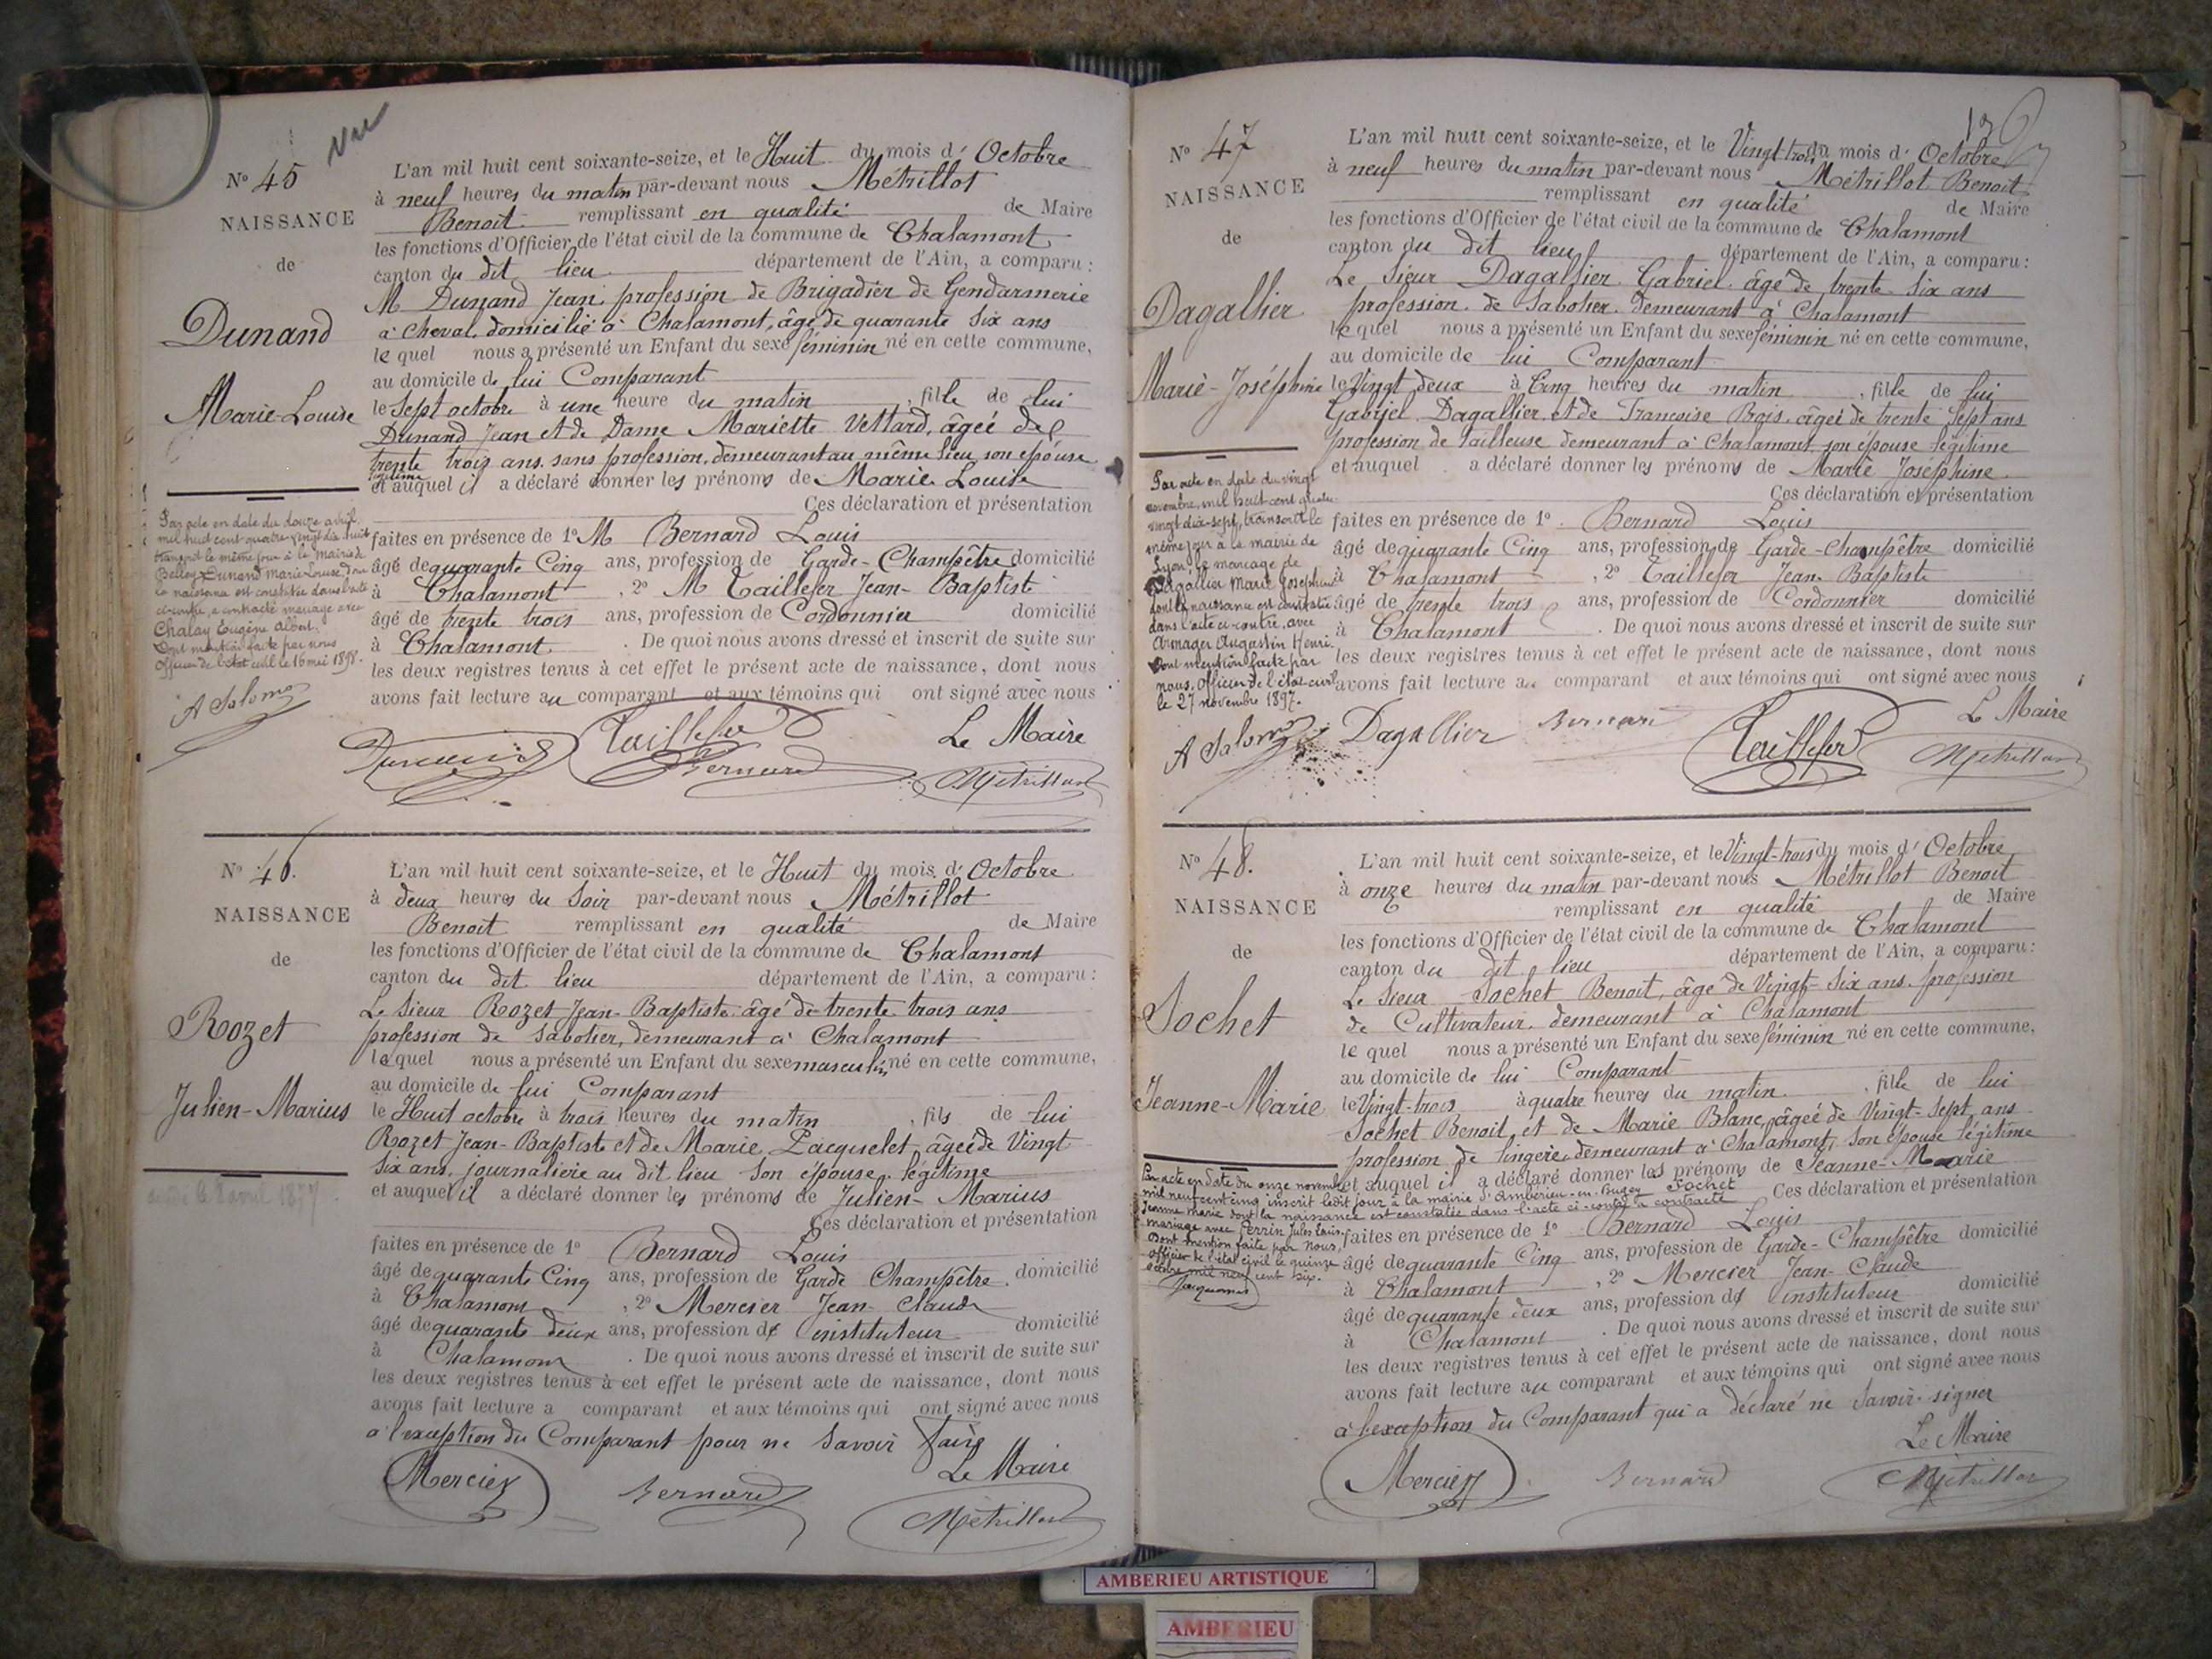 Vu
N° 45
NAISSANCE
de
Dunand
Marie-Louise
L'an mil huit cent soixante-seize, et le Huit du mois d'Octobre
à neuf heures du matin par-devant nous Métrillot
Benoit remplissant en qualité de Maire
les fonctions d'Officier de l'état civil de la commune de Chalamont
canton du dit lieu département de l'Ain, a comparu :
M Dunand Jean, profession de Brigadier de Gendarmerie
à cheval, domicilié à Chalamont, âgé de quarante Six ans
le quel nous a présenté un Enfant du sexe féminin né en cette commune,
au domicile de lui Comparant
le Sept octobre à une heure du matin, fille de lui
Dunand Jean et de Dame Mariette Vettard, âgée de
trente trois ans, sans profession, demeurant au même lieu son épouse
légitime
et auquel il a déclaré donner les prénoms de Marie Louise
Ces déclaration et présentation
faites en présence de 1° M Bernard Louis
âgé de quarante Cinq ans, profession de Garde-Champêtre domicilié
à Chalamont, 2° M Taillefer Jean-Baptiste
âgé de trente trois ans, profession de Cordonnier domicilié
à Chalamont. De quoi nous avons dressé et inscrit de suite sur
les deux registres tenus à cet effet le présent acte de naissance, dont nous
avons fait lecture au comparant et aux témoins qui ont signé avec nous
Par acte en date du douze avril
mil huit cent quatre vingt dix huit
transcrit le même jour à la mairie de
Belley Dunand Marie Louise dont
la naissance est constatée dans l'acte
ci-contre, a contracté mariage avec
Chalay Eugène Albert.
Dont mention faite par nous
Officier de l'état civil le 16 mai 1898.
A Salomo
Dunand Taillefer Bernard
Le Maire
Métrillot
N° 46.
NAISSANCE
de
Rozet
Julien-Marius
L'an mil huit cent soixante-seize, et le Huit du mois d'Octobre
à deux heures du Soir par-devant nous Métrillot
Benoit remplissant en qualité de Maire
les fonctions d'Officier de l'état civil de la commune de Chalamont
canton du dit lieu département de l'Ain, a comparu :
Le Sieur Rozet Jean-Baptiste âgé de trente trois ans
profession de Sabotier, demeurant à Chalamont
lequel nous a présenté un Enfant du sexe masculin né en cette commune,
au domicile de lui Comparant
le Huit octobre à trois heures du matin, fils de lui
Rozet Jean-Baptiste et de Marie Pacquelet âgée de Vingt
Six ans, journalière au dit lieu Son épouse légitime
et auquel il a déclaré donner les prénoms de Julien-Marius
Ces déclaration et présentation
faites en présence de 1° Bernard Louis
âgé de quarante Cinq ans, profession de Garde Champêtre domicilié
à Chalamont, 2° Mercier Jean-Claude
âgé de quarante deux ans, profession d' instituteur domicilié
à Chalamont. De quoi nous avons dressé et inscrit de suite sur
les deux registres tenus à cet effet le présent acte de naissance, dont nous
avons fait lecture a comparant et aux témoins qui ont signé avec nous
à l'exception du Comparant pour ne Savoir faire
avril 1877
Mercier Bernard
Le Maire
Métrillot
N° 47
NAISSANCE
de
Dagallier
Marie-Joséphine
L'an mil huit cent soixante-seize, et le Vingt trois du mois d'Octobre
à neuf heures du matin par-devant nous Métrillot Benoit
remplissant en qualité de Maire
les fonctions d'Officier de l'état civil de la commune de Chalamont
canton du dit lieu département de l'Ain, a comparu :
Le Sieur Dagallier Gabriel âgé de trente Six ans
profession de Sabotier demeurant à Chalamont
lequel nous a présenté un Enfant du sexe féminin né en cette commune,
au domicile de lui Comparant
le Vingt deux à Cinq heures du matin, fille de lui
Gabriel Dagallier et de Françoise Bois, âgée de trente Sept ans
profession de tailleuse demeurant à Chalamont, son épouse légitime
et auquel a déclaré donner les prénoms de Marie Joséphine
Ces déclaration et présentation
faites en présence de 1° Bernard Louis
âgé de quarante Cinq ans, profession de Garde-Champêtre domicilié
à Chalamont, 2° Taillefer Jean-Baptiste
âgé de trente trois ans, profession de Cordonnier domicilié
à Chalamont. De quoi nous avons dressé et inscrit de suite sur
les deux registres tenus à cet effet le présent acte de naissance, dont nous
avons fait lecture au comparant et aux témoins qui ont signé avec nous
Par acte en date du vingt
novembre, mil huit cent quatre
vingt dix-sept, transcrit le
même jour à la mairie de
Lyon, le mariage de
Dagallier Marie Joséphine
dont la naissance est constatée
dans l'acte ci-contre, avec
Armager Augustin Henri.
Dont mention faite par
nous, Officier de l'état civil
le 27 novembre 1897.
A Salomo Dagallier Bernard Taillefer
Le Maire
Métrillot
N° 48.
NAISSANCE
de
Sochet
Jeanne-Marie
L'an mil huit cent soixante-seize, et le Vingt-trois du mois d'Octobre
à onze heures du matin par-devant nous Métrillot Benoit
remplissant en qualité de Maire
les fonctions d'Officier de l'état civil de la commune de Chalamont
canton du dit lieu département de l'Ain, a comparu :
Le Sieur Sochet Benoit, âgé de Vingt-Six ans, profession
de Cultivateur, demeurant à Chalamont
le quel nous a présenté un Enfant du sexe féminin né en cette commune,
au domicile de lui Comparant
le Vingt-trois à quatre heures du matin, fille de lui
Sochet Benoit et de Marie Blanc, âgée de Vingt-Sept ans
profession de lingère, demeurant à Chalamont, Son épouse légitime
et auquel il a déclaré donner les prénoms de Jeanne-Marie
Ces déclaration et présentation
faites en présence de 1° Bernard Louis
âgé de quarante Cinq ans, profession de Garde-Champêtre domicilié
à Chalamont, 2° Mercier Jean-Claude
âgé de quarante deux ans, profession d' instituteur domicilié
à Chalamont. De quoi nous avons dressé et inscrit de suite sur
les deux registres tenus à cet effet le présent acte de naissance, dont nous
avons fait lecture au comparant et aux témoins qui ont signé avec nous
à l'exception du Comparant qui a déclaré ne Savoir signer
Par acte en date du onze novembre
mil neuf cent cinq inscrit ledit jour à la mairie d'Ambérieu-en-Bugey Sochet
Jeanne Marie dont la naissance est constatée dans l'acte ci-contre a contracté
mariage avec Perrin Jules Louis.
Dont mention faite par Nous,
Officier de l'état civil le quinze
mil neuf cent six.
Mercier Bernard
Le Maire
Métrillot
AMBERIEU ARTISTIQUE
AMBERIEU